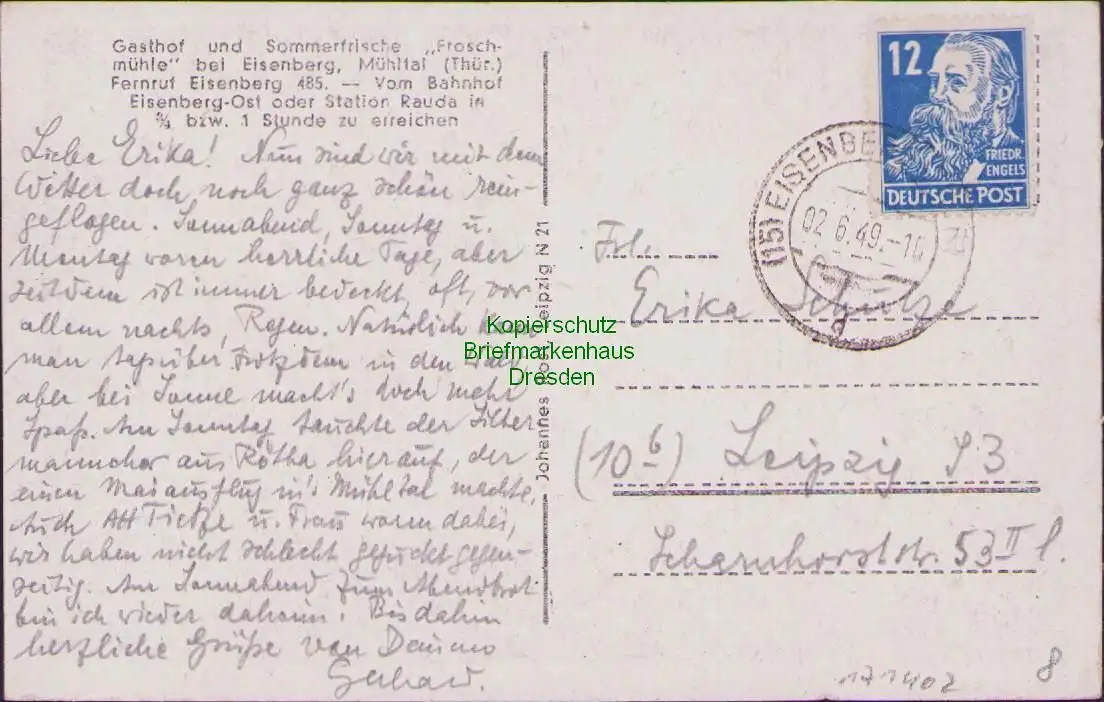 Gasthof und Sommerfrische „Frosch-
mühle" bei Eisenberg, Mühltal (Thür.)
Fernruf Eisenberg 485. — Vom Bahnhof
Eisenberg-Ost oder Station Rauda in
¾ bzw. 1 Stunde zu erreichen
Liebe Erika! Nun sind wir mit dem
Wetter doch noch ganz schön rein-
geflogen. Sonnabend, Sonntag u.
Montag waren herrliche Tage, aber
seitdem ist immer bedeckt, oft, vor
allem nachts, Regen. Natürlich kann
man tagsüber trotzdem in den Wald
aber bei Sonne macht's doch mehr
Spaß. Am Sonntag tauchte der
männchor aus Rötha hierauf, der
einen Maiausflug in's Mühltal machte.
Auch AH Tietze u. Frau waren dabei,
wir haben nicht schlecht geguckt gegen-
seitig. Am Sonnabend zum Abendbrot
bin ich wieder daheim. Bis dahin
herzliche Grüße von Deinem
Gerhard.
Johannes Leipzig N 21
12
FRIEDR.
ENGELS
DEUTSCHE POST
(15) EISENBE
02.6.49.-10
d
Frl.
Erika Schulze
(10b) Leipzig S3
Scharnhorststr. 53 II l.
Kopierschutz
Briefmarkenhaus
Dresden
171402
8